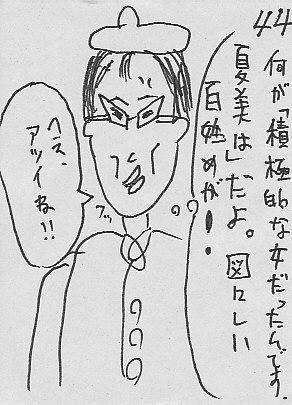 44
何が「積極的な女だったんです、
夏美は」だよ。図々しい
百姓めが!!
ヘヘ、
アツイね!!
フッ